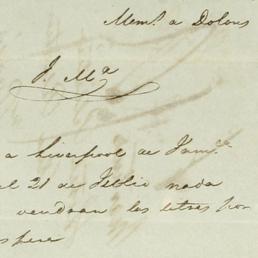 Mem.s a Dolores
J. Ma
a Liverpool de
el 21 de Julio nada
vendran las letras por